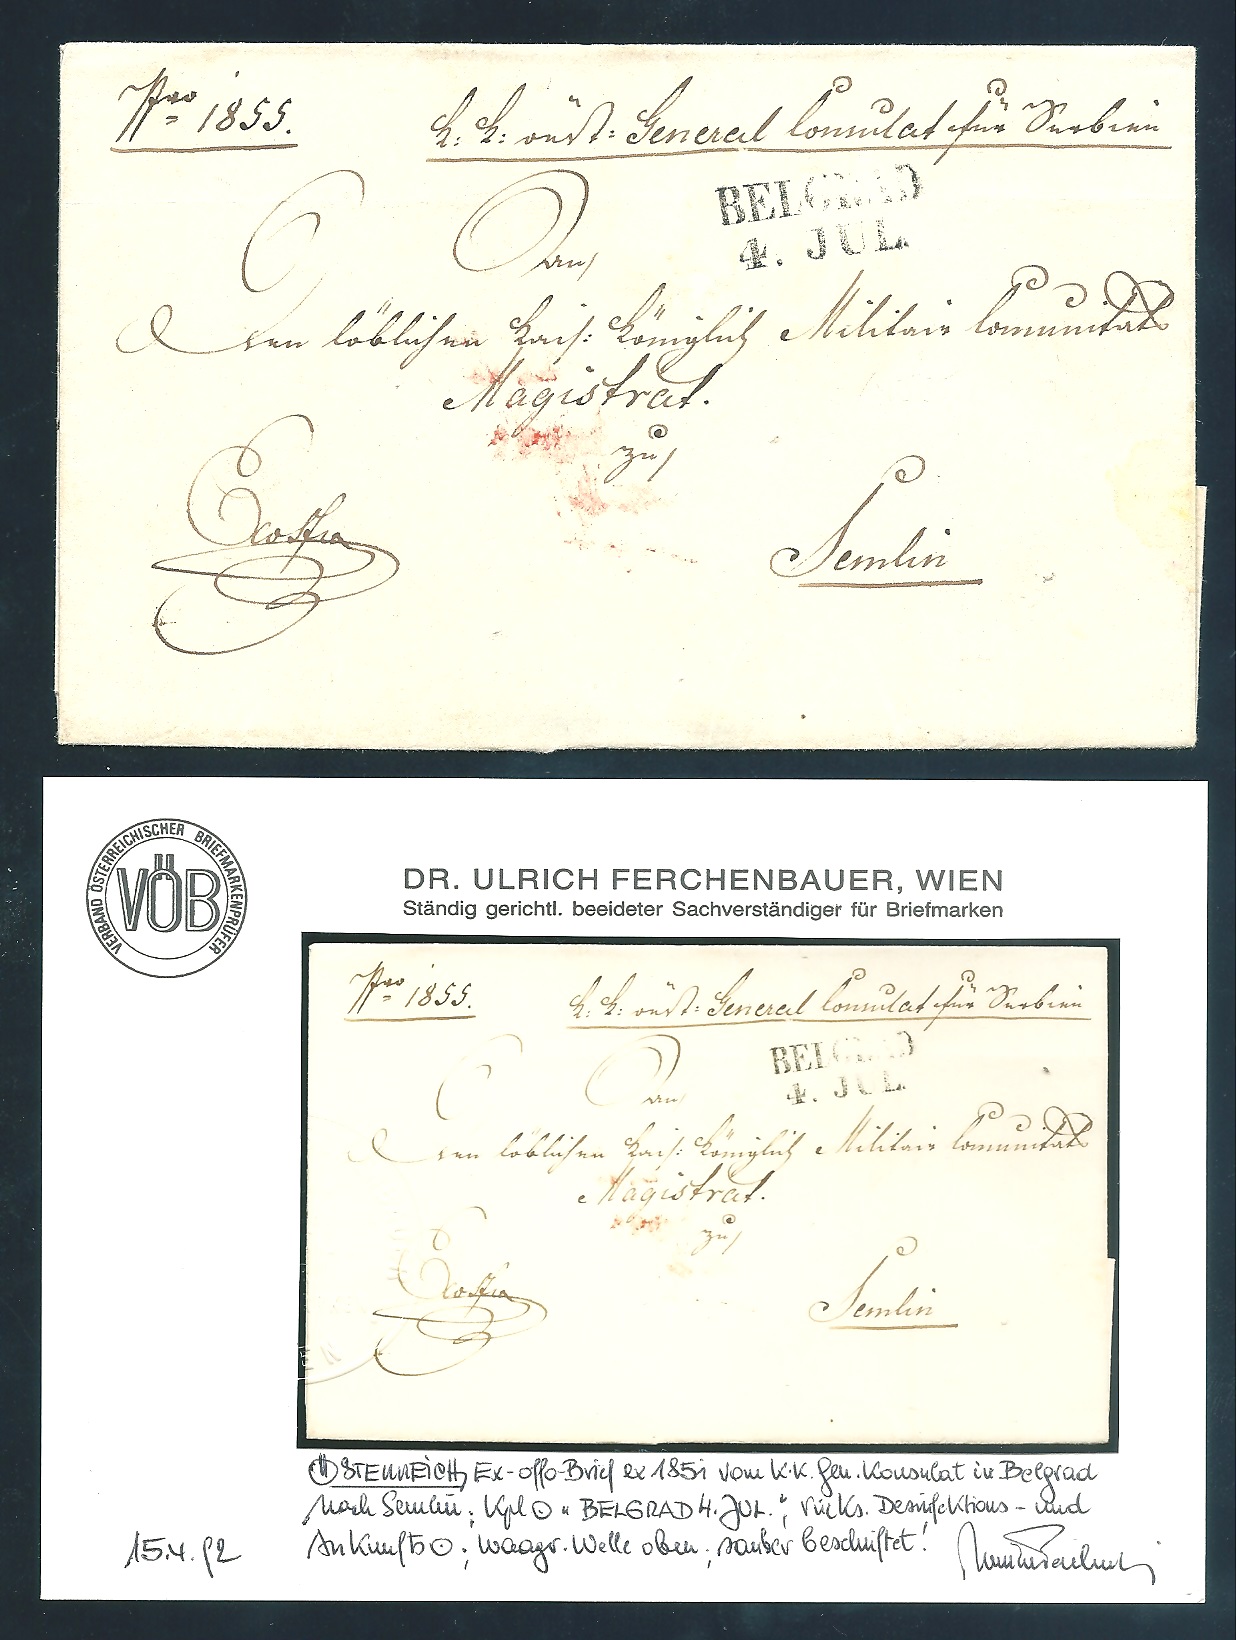 Nro 1855.
K: K: öest: General Consulat für Serbien
BELGRAD
4. JUL.
An
Den löblichen Kais: Königlich Militair Comunitäts
Magistrat.
zu
Semlin
VERBAND ÖSTERREICHISCHER BRIEFMARKENPRÜFER
VÖB
DR. ULRICH FERCHENBAUER, WIEN
Ständig gerichtl. beeideter Sachverständiger für Briefmarken
Nro 1855.
K: K: öest: General Consulat für Serbien
BELGRAD
4. JUL.
An
Den löblichen Kais: Königlich Militair Comunitäts
Magistrat.
zu
Semlin
ÖSTERREICH, Ex-offo-Brief ex 1851 vom K.K. Gen. Konsulat in Belgrad
nach Semlin; Kpl ⊙ "BELGRAD 4. JUL.", rücks. Desinfektions- und
Ankunfts ⊙; waagr. Welle oben; sauber beschriftet!
15.4.92